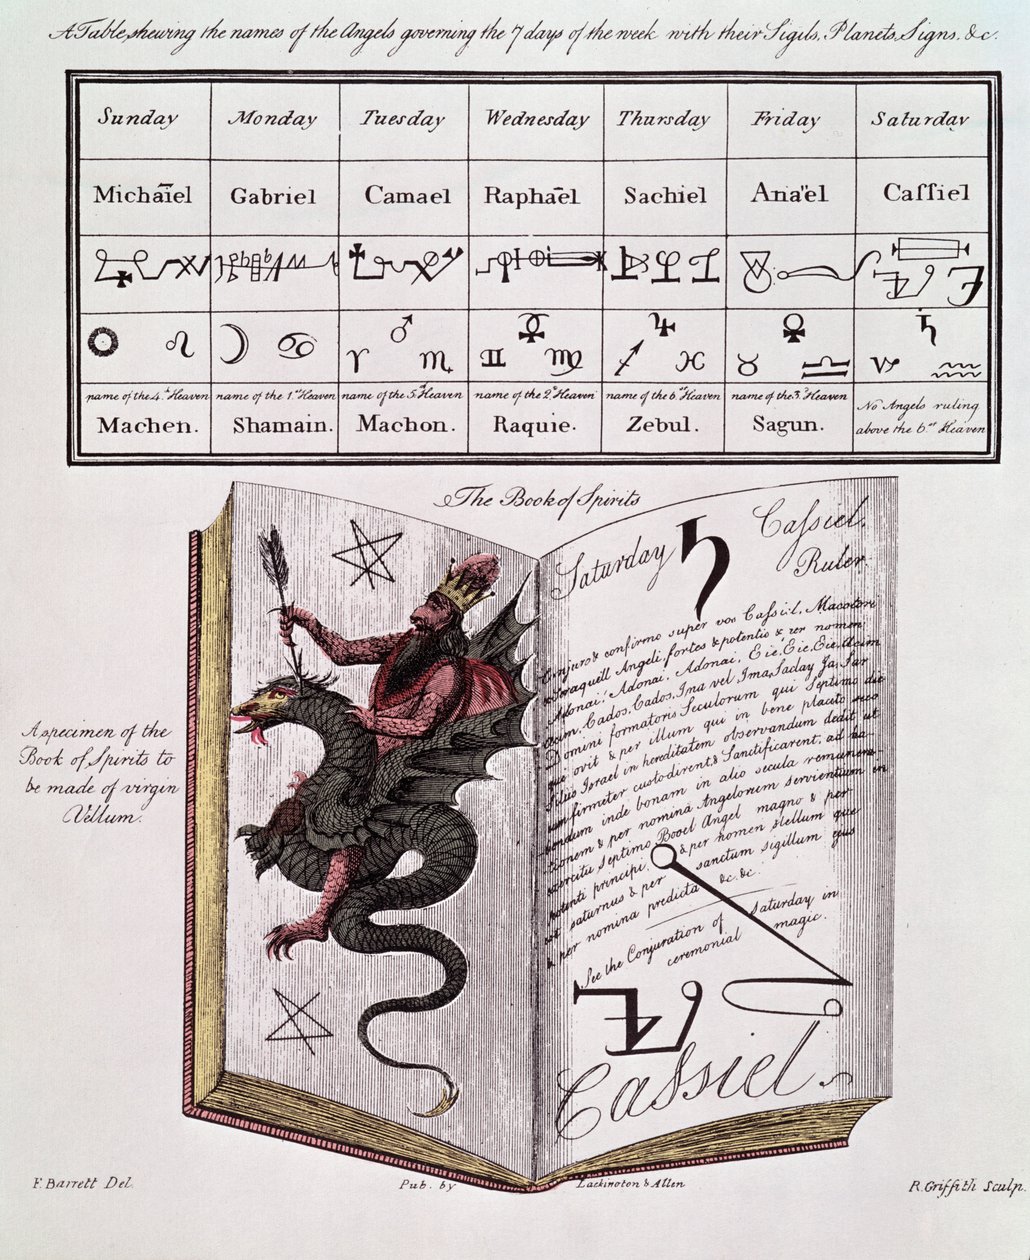 A Table, shewing the names of the Angels governing the 7 days of the week with their Sigils, Planets, Signs, &c.
Sunday Monday Tuesday Wednesday Thursday Friday Saturday
Michaïel Gabriel Camael Raphaēl Sachiel Ana"el Caſſiel
☉ ♌ ☽ ♋ ♂ ♈ ♏ ☿ ♊ ♍ ♃ ♐ ♓ ♀ ♉ ♎ ♄ ♑ ♒
name of the 4.th Heaven name of the 1.st Heaven name of the 5.th Heaven name of the 2.d Heaven name of the 6.th Heaven name of the 3.d Heaven No Angels ruling
Machen. Shamain. Machon. Raquie. Zebul. Sagun. above the 6.th Heaven
The Book of Spirits
Saturday ♄ Caſsiel,
Ruler.
Conjuro & confirmo super vos Caſsiel, Macatori
Seraquiel Angeli, fortes & potentio & per nomen
Adonai, Adonai, Adonai, Eie, Eie, Eie, Acim
Acim, Cados, Cados, Ina vel Ima, Saday Ja, Sar
Domini formatoris Seculorum qui Septimo die
que ovit & per illum qui in bene placito suo
filius Israel in hereditatem observandum dedit ut
firmiter custodirent & Sanctificarent, ad ha-
bondum inde bonam in alio secula remunera-
tionem & per nomina Angelorum servientium in
exercitu septimo Booel Angel magno & per
potenti principi, & per nomen stellum que
est saturnus & per sanctum sigillum ejus
& per nomina predicta &c. &c.
See the Conjuration of Saturday in
ceremonial magic.
Caſsiel
A specimen of the
Book of Spirits to
be made of virgin
Vellum.
F. Barrett Del. Pub. by Lackington & Allen R. Griffith Sculp.